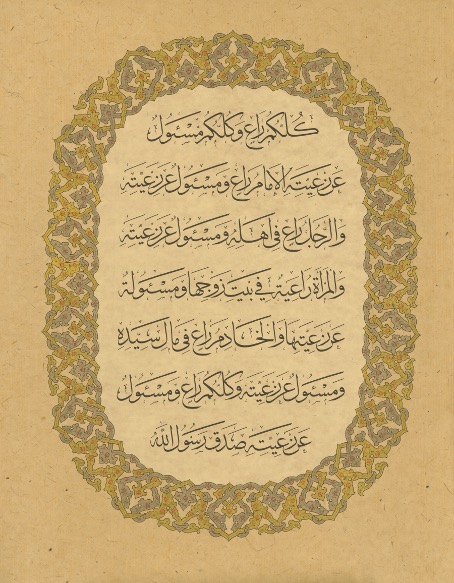 كلكم راع وكلكم مسئول
عن رعيته الإمام راع ومسئول عن رعيته
والرجل راع في أهله ومسئول عن رعيته
والمرأة راعية في بيت زوجها ومسئولة
عن رعيتها والخادم راع في مال سيده
ومسئول عن رعيته وكلكم راع ومسئول
عن رعيته صدق رسول الله